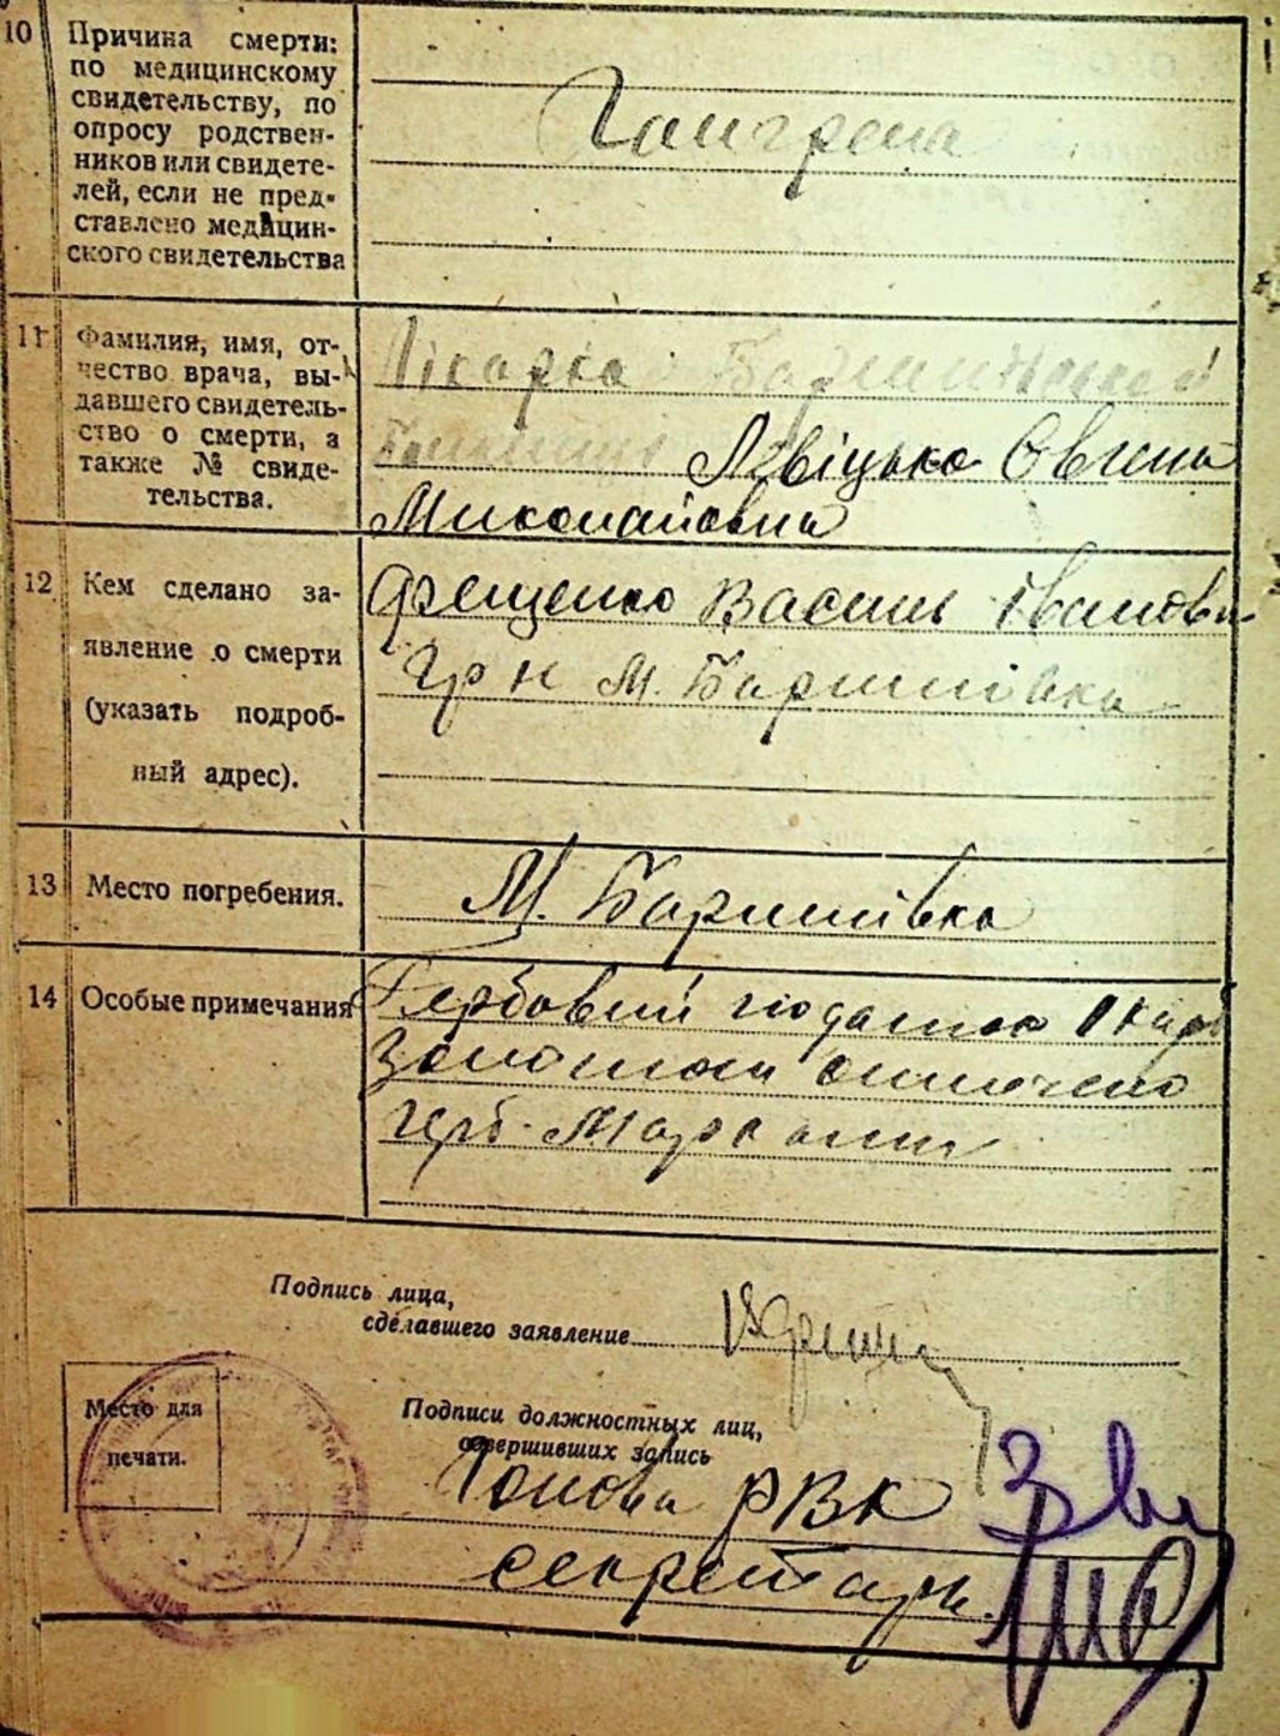 10 Причина смерти:
по медицинскому
свидетельству, по
опросу родствен-
ников или свидете-
лей, если не пред-
ставлено медицин-
ского свидетельства
Гангрена
11 Фамилия, имя, от-
чество врача, вы-
давшего свидетель-
ство о смерти, а
также № свиде-
тельства.
Лікарка
Левіцька Овгена
Миколаївна
12 Кем сделано за-
явление о смерти
(указать подроб-
ный адрес).
Фещенко Василь Іванови
гр н м. Баришівка
13 Место погребения.
М. Баришівка
14 Особые примечания
Гербовий податок 1 карб
золотом сплочено
герб. Марками
Подпись лица,
сделавшего заявление
Место для
печати.
Подписи должностных лиц,
совершивших запись
Голова РВК
секретарь.